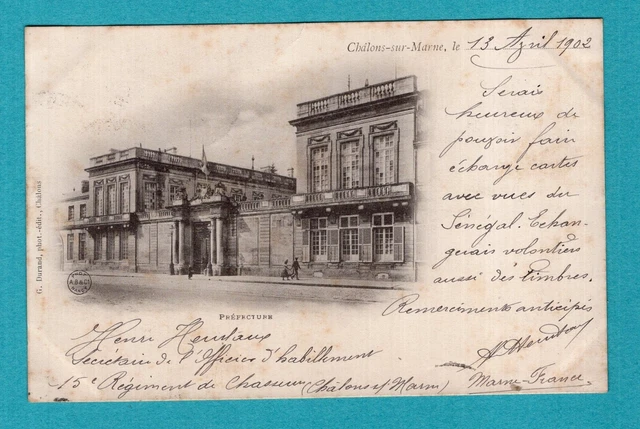 Châlons-sur-Marne, le 13 Avril 1902
Serais
heureux de
pouvoir faire
échange cartes
avec vues du
Sénégal. Echan-
gerais volontiers
aussi des timbres.
Remerciments anticipés
G. Durand, phot.-édit., Châlons
PRÉFECTURE
Henri
Secrétaire de l'Officier d'habillement
15e Régiment de Chasseurs (Châlons s/ Marne)
Marne-France